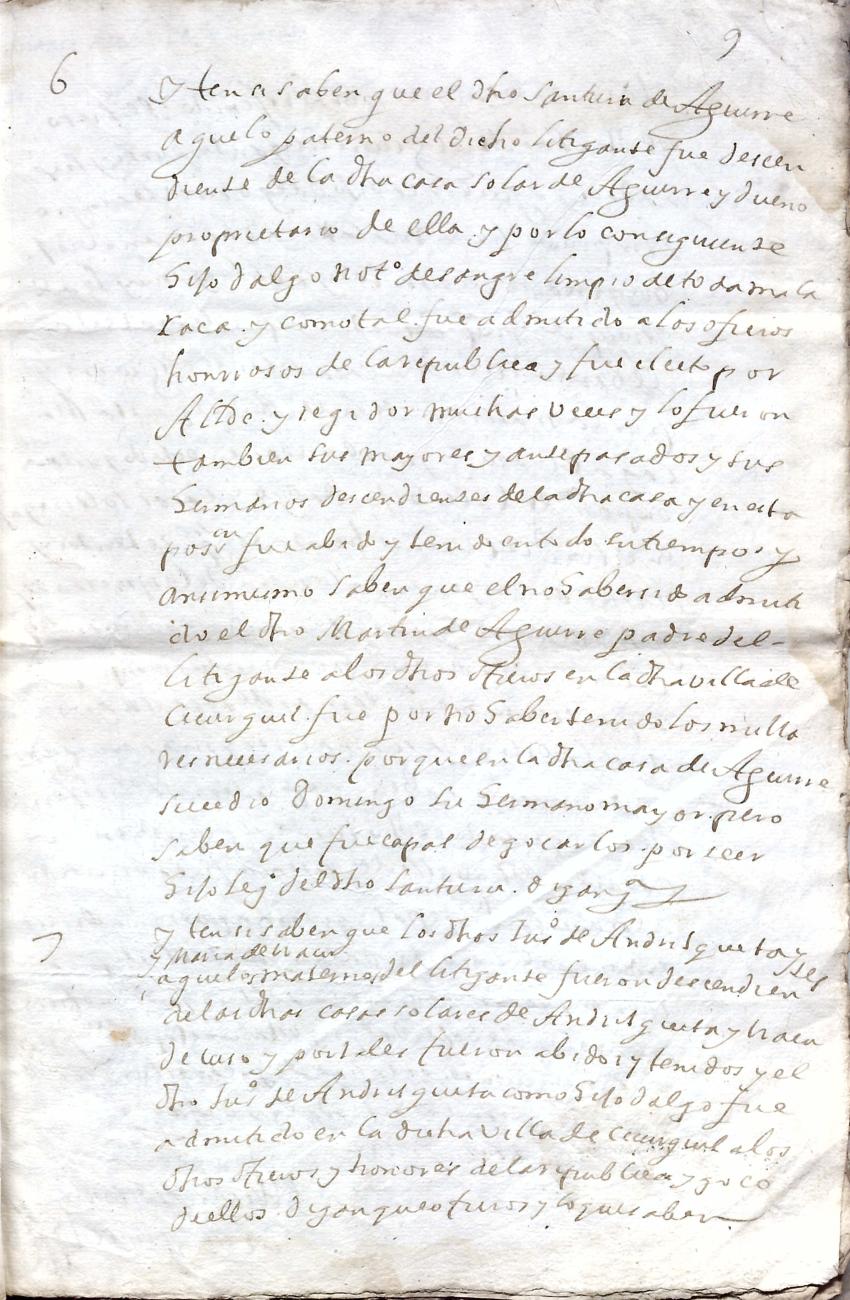 9
6
yten si saben que el dho Santuru de Aguirre
aguelo paterno del dicho litigante fue descen
diente de la dha casa solar de Aguirre y dueno
proprietario de ella y por lo consiguiente
hijo dalgo notº de sangre limpio de toda mala
raca y como tal fue admitido a los oficios
honrrosos de la republica y fue electo por
Allde y regidor muchas veces y lo fueron
tambien sus mayores y antepasados y sus
hermanos descendientes de la dha casa y en esta
posson fue abido y tenido en todo su tiempo y
ansimismo saben que el no haber sido admiti
do el dho Martin de Aguirre padre del
litigante a los dhos oficios en la dha villa de
Cicurquil fue por no haber tenido los milla
res necesarios porque en la dha casa de Aguirre
sucedio Domingo su hermano mayor pero
saben que fue capas de gocarlos por seer
hijo lejº del dho Santuru digan
7
yten si saben que los dhos Juº de Andrisqueta y
y Maria de Yraeu
aguelos maternos del litigante fueron descendien tes
de las dhas casas solares de Andrisqueta y Yraeu
de suso y por tales fueron abidos y tenidos y el
dho Juº de Andrisqueta como hijo dalgo fue
admitido en la dicha villa de Cicurquil a los
dhos oficios y honores de la republica y goco
de ellos digan que oficios y lo que saben